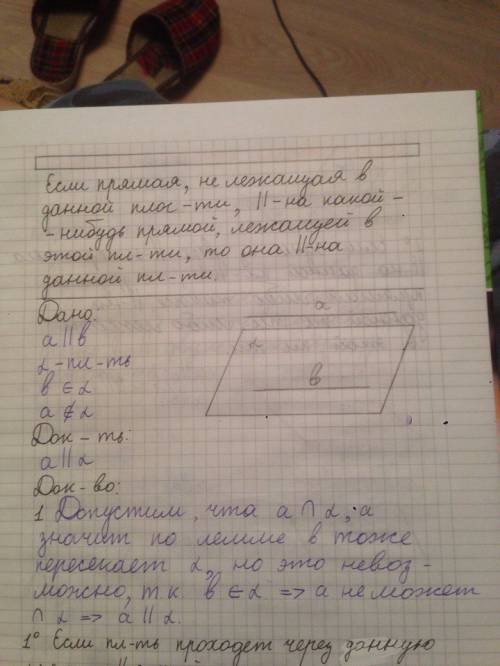 Если прямая, не лежащая в
данной плос-ти, ||-на какой-
-нибудь прямой, лежащей в
этой пл-ти, то она ||-на
данной пл-ти.
Дано:
a || в
α-пл-ть
в ∈ α
a ∉ α
Док-ть:
a || α
Док-во:
a
α
в
1 Допустим, что a ∩ α, а
значит по лемме в тоже
пересекает α, но это невоз-
можно, т.к. в ∈ α => a не может
∩ α => a || α.
1° Если пл-ть проходет через данную